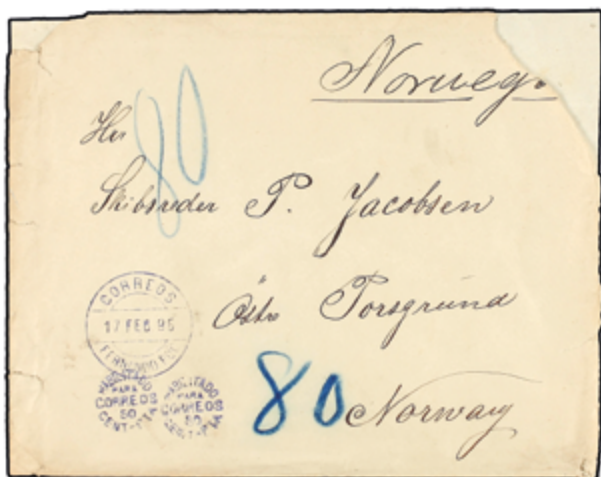 Norwego
80
Herr
Skibsreder P. Jacobsen
Östre Porsgrund
CORREOS
17 FEB 95
FERNANDO POO
HABILITADO
PARA
CORREOS
50
CENT-PTA
HABILITADO
PARA
CORREOS
50
CENT-PTA
80
Norway